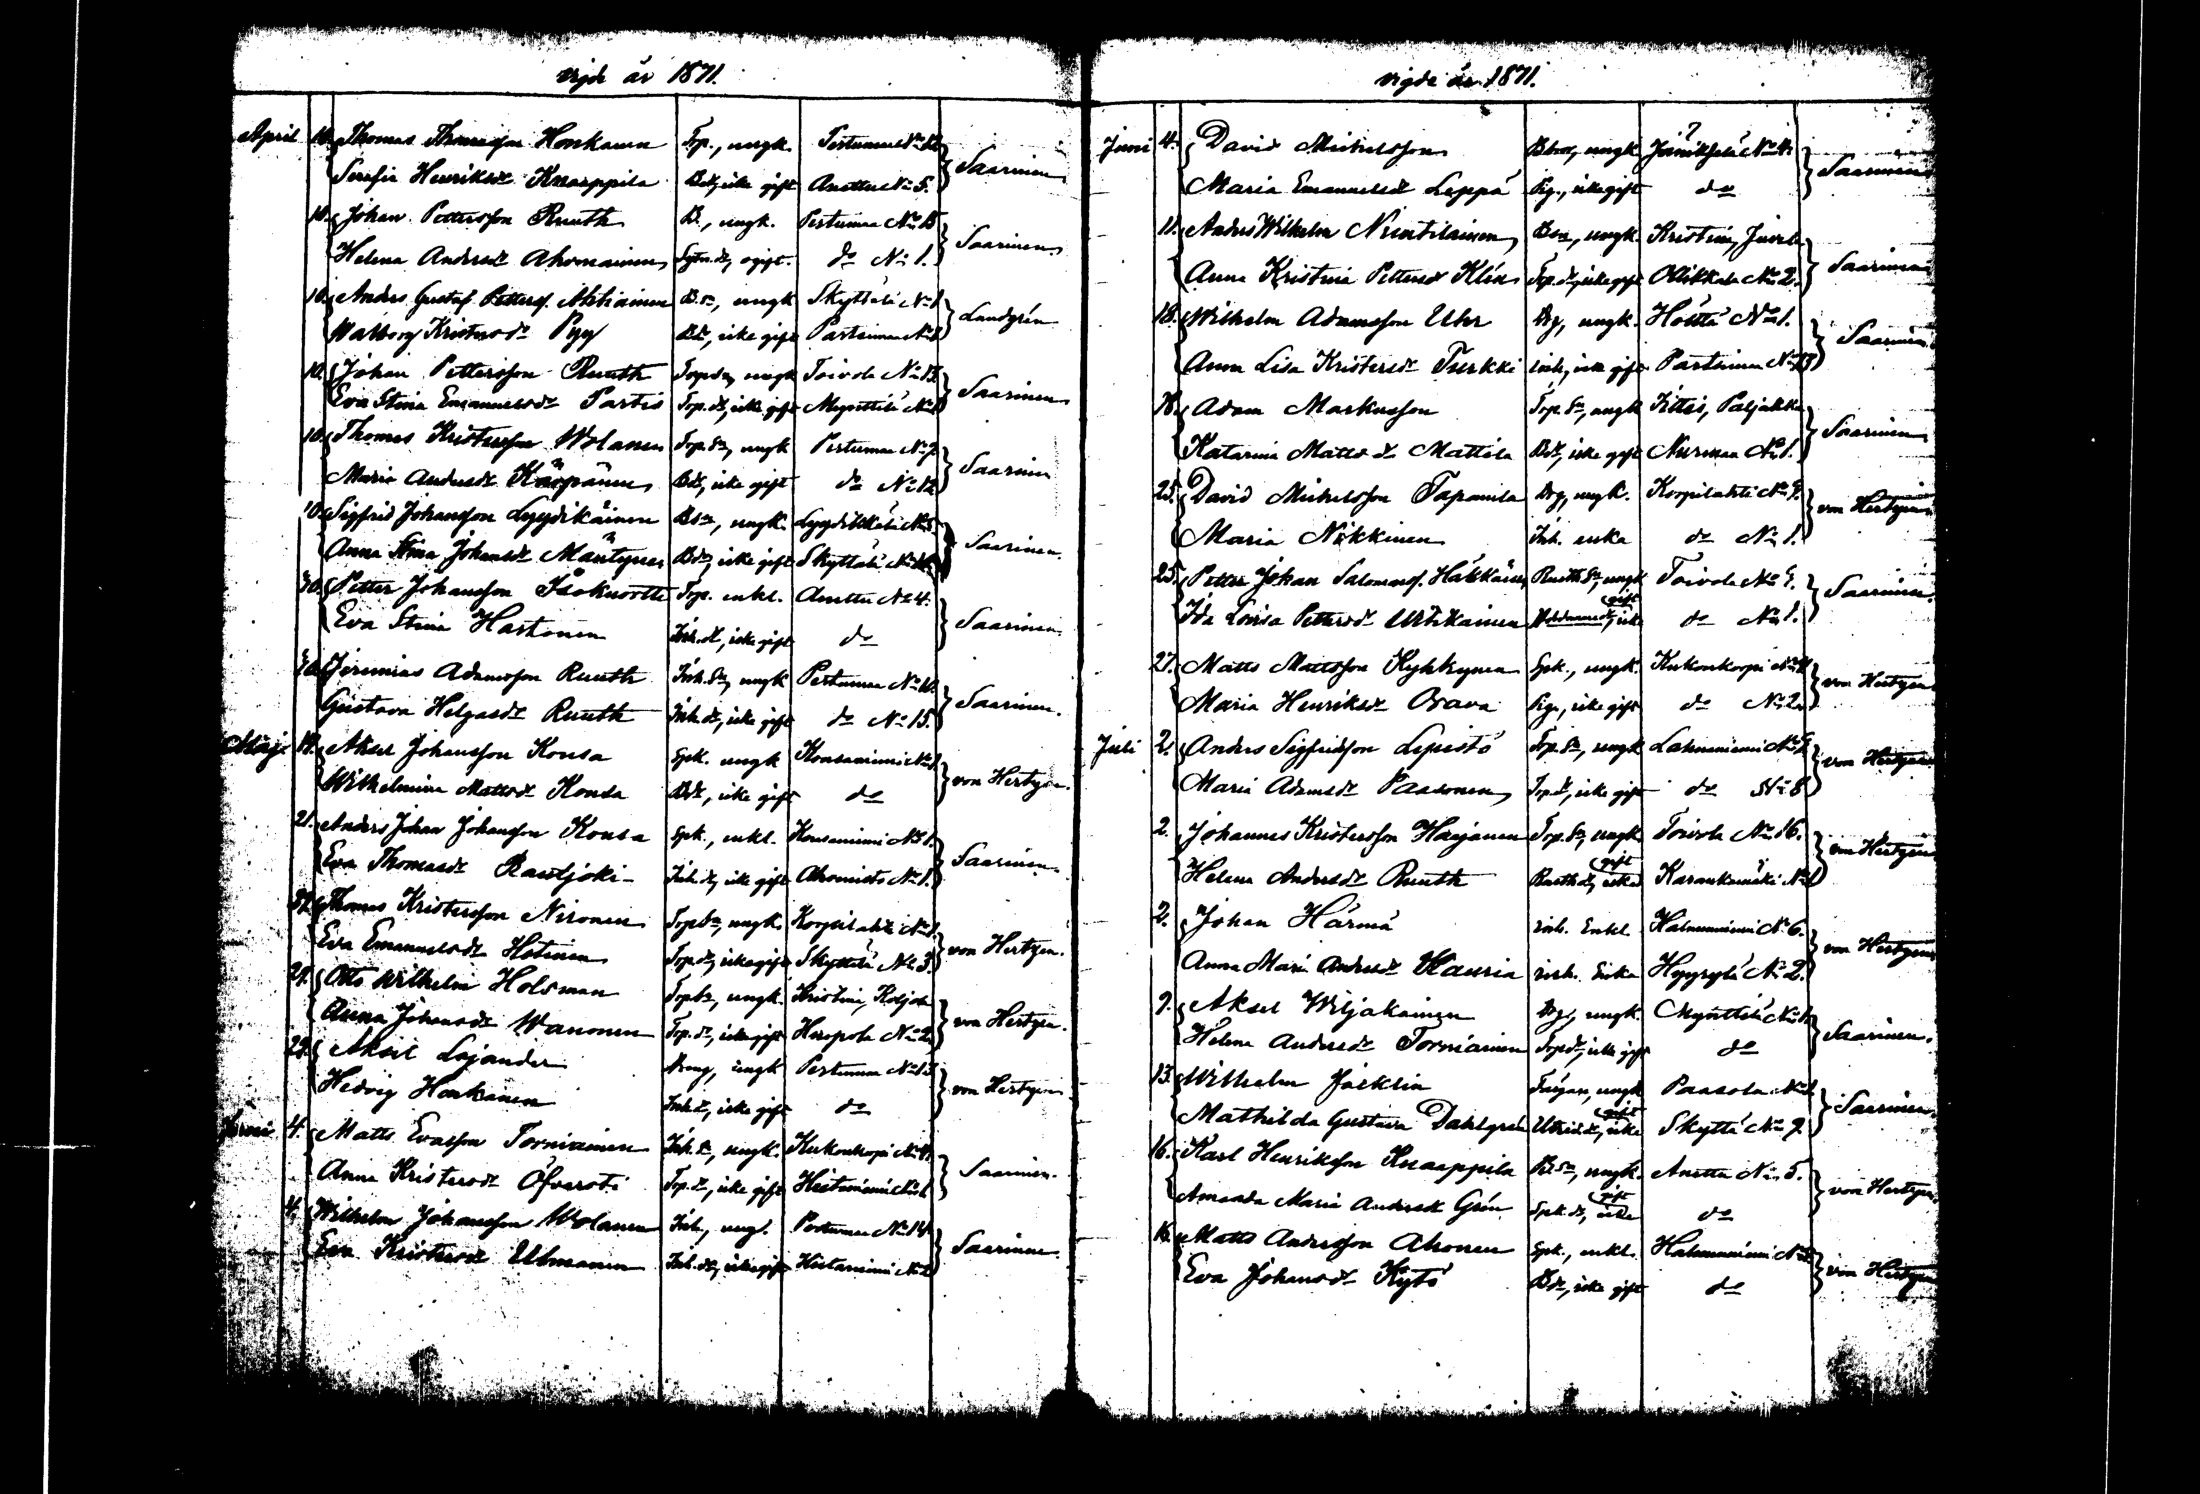 vigde år 1871.
April 10. Thomas Thomasson Honkanen Torp., ungk. Pertumaa No 12 Saarinen
Serafia Henriksdr Knaappila Bdr, icke gift Anettu No 5.
10. Johan Pettersson Ruuth B., ungk. Pertumaa No 15 Saarinen
Helena Andersdr Ahomainen ogift. do No 1.
10. Anders Gustaf Petterss. Ahtiainen B.sn, ungk Skyttälä No 1 Landgrén
Walborg Kristersdr Pyy Bdr, icke gift Partsimaa No
10. Johan Pettersson Ruuth Torp.sn, ungk Toivola No 13 Saarinen
Eva Stina Emanuelsdr Partio Torp.dr, icke gift Mynttilä No
10. Thomas Kristersson Wolanen Torp.sn, ungk Pertumaa No 7 Saarinen
Maria Andersdr Kärpänen Bdr, icke gift do No 12
10. Sigfrid Johansson Lyydikäinen Bsn, ungk. No Saarinen
Anna Stina Johansdr Mäntynen Bdr, icke gift Skyttälä No
30. Petter Johansson Isokuortti Torp. enkl. Anettu No 4. Saarinen.
Eva Stina Hartonen Inh.dr, icke gift do
30. Jeremias Adamsson Ruuth Inh.sn, ungk Pertumaa No 10. Saarinen.
Gustava Helgasdr Ruuth Inh.dr, icke gift do No 15.
Maji 14. Aksel Johansson Konsa Spk. ungk Konsaniemi No 1. von Hertzen.
Wilhelmina Mattsdr Konsa Bdr, icke gift do
21. Anders Johan Johansson Konsa Spk., enkl. Konsaniemi No 1. Saarinen.
Eva Thomasdr Rautjoki Inh.dr, icke gift Ahomieto No 1.
29. Thomas Kristersson Nironen Torp.sn, ungk. Korpilahti No von Hertzen.
Eva Emanuelsdr Hotinen Torp.dr, icke gift Skyttälä No 3.
29. Otto Wilhelm Holsman Torp.sn, ungk. Kristina, Koljola von Hertzen.
Anna Johansdr Wanonen Torp.dr, icke gift Hirvpola No 2
29. Aksel Lojander Dreng, ungk Pertumaa No 13 von Hertzen
Hedvig Honkanen Inh.dr, icke gift do
Juni 4. Matts Evasson Torniainen Inh.sn, ungk. Kukonkorpi No 4. Saarinen.
Anna Kristersdr Öfversti Torp.dr, icke gift Hietaniemi No
4. Wilhelm Johansson Wolanen Inh., ungk. Pertumaa No 14. Saarinen
Eva Kristersdr Ukmanen Inh.dr, icke gift Hietaniemi No 2
vigde år 1871.
Juni 4. David Michelsson Bson, ungk No 4. Saarinen
Maria Emanuelsdr Leppä Pig., icke gift do
11. Anders Wilhelm Nuutilainen Bsn, ungk. Kristina, Saarinen
Anna Kristina Pettersdr Klén Torp.dr, icke gift Ollikkala No 2.
18. Wilhelm Adamsson Uhr Drg, ungk. Hölttä No 1. Saarinen
Anna Lisa Kristersdr Turkki inh., icke gift Partsimaa No 13
18. Adam Markusson Torp.sn, ungk Jittis, Paljakka Saarinen
Katarina Mattsdr Mattila Bdr, icke gift Nurmaa No 1.
25. David Michelsson Tapanila Drg, ungk. Korpilahti No 9. von Hertzen.
Maria Nikkinen Inh. enka do No 1.
25. Petter Johan Salomonss. Häkkäinen ungk Toivola No 9. Saarinen.
Ida Lovisa Pettersdr Uhtikainen icke gift do No 1.
27. Matts Mattsson Kyhkynen Spk., ungk. Kukonkorpi No 4 von Hertzen
Maria Henriksdr Orava Pig., icke gift do No 2.
Juli 2. Anders Sigfridsson Lepistö Torp.sn, ungk Lahnaniemi No 9 von Hertzen
Maria Adamsdr Paasonen Torp.dr, icke gift do No 8
2. Johannes Kristersson Harjanen Torp.sn, ungk. Toivola No 16. von Hertzen
Helena Andersdr Ruuth icke gift Karankamäki No 1
2. Johan Härmä inh. Enkl. Halmeniemi No 6. von Hertzen
Anna Maria Andersdr Kauria inh. Enka Hyyrylä No 2.
9. Aksel Wiljakainen Drg, ungk. Mynttilä No Saarinen.
Helena Andersdr Torniainen Torp.dr, icke gift do
13. Wilhelm Jäcklin Färgare, ungk Paasola No Saarinen.
Mathilda Gustava Dahlgrén icke gift Skyttä No 7.
16. Karl Henriksson Knaappila B.sn, ungk. Anettu No 5. von Hertzen.
Amanda Maria Andersdr Grén Spk.dr, icke gift do
16. Matts Andersson Ahonen Spk., enkl. Halmeniemi No von Hertzen
Eva Johansdr Kytö Bdr, icke gift do